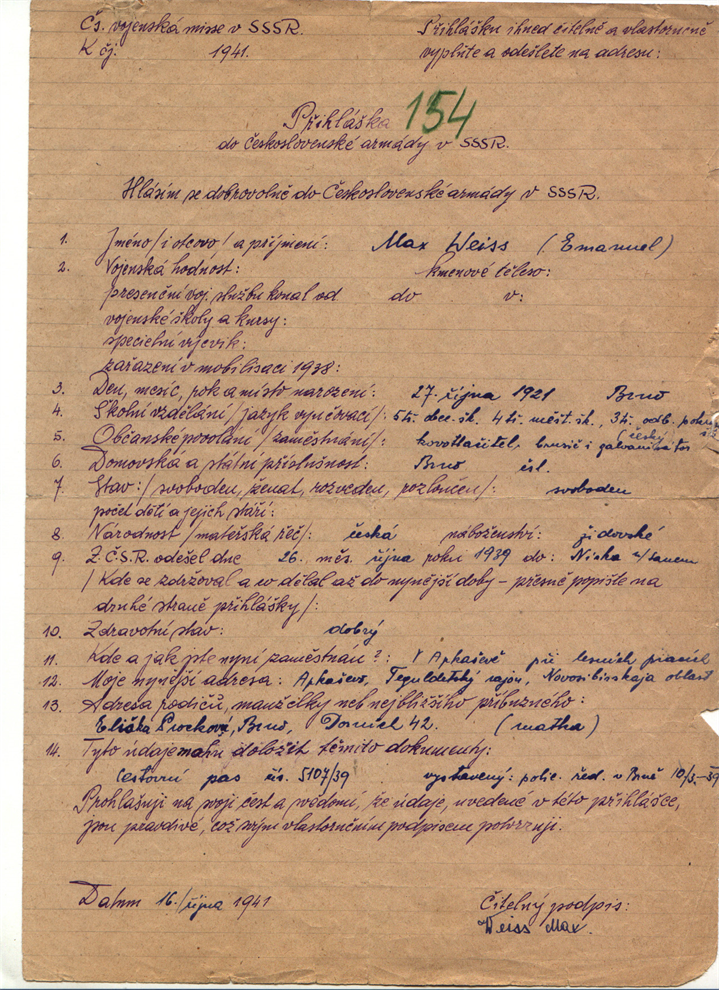 Čs. vojenská misse v SSSR.
Přihlášku ihned čitelně a vlastoručně
K čj. 1941.
vyplňte a odešlete na adresu:
Přihláška 154
do Československé armády v SSSR.
Hlásím se dobrovolně do Československé armády v SSSR.
1. Jméno /i otcovo/ a příjmení: Max Weiss (Emanuel)
2. Vojenská hodnost: kmenové těleso:
presenční voj. službu konal od do v:
vojenské školy a kursy:
specielní výcvik:
zařazení v mobilisaci 1938:
3. Den, měsíc, rok a místo narození: 27. října 1921 Brno
4. Školní vzdělání /jazyk vyučovací/: 5 tř. obec. šk. 4 tř. měšť. šk., 3 tř. odb.
(český
5. Občanské povolání /zaměstnání/: kovotlačitel, brusič i galvanisator
6. Domovská a státní příslušnost: Brno čsl.
7. Stav: /svoboden, ženat, rozveden, rozloučen/: svoboden
počet dětí a jejich stáří:
8. Národnost /mateřská řeč/: česká náboženství: židovské
9. Z Č.S.R. odešel dne 26. měs. října roku 1939 do: Niska n/Sanem
/Kde se zdržoval a co dělal až do nynější doby - přesně popište na
druhé straně přihlášky/:
10. Zdravotní stav: dobrý
11. Kde a jak jste nyní zaměstnán?: V Apkaševě při lesních pracích
12. Moje nynější adresa: Apkaševo, Teguldetský rajón, Novosibirskaja oblast
13. Adresa rodičů, manželky neb nejbližšího příbuzného:
Eliška, Brno, Dornich 42. (matka)
14. Tyto údaje mohu doložit těmito dokumenty:
Cestovní pas čís. 5107/39 vystavený: polic. řed. v Brně 10/3.-39
Prohlašuji na svoji čest a vědomí, že údaje, uvedené v této přihlášce,
jsou pravdivé, což svým vlastoručním podpisem potvrzuji.
Datum 16./října 1941
Čitelný podpis:
Weiss Max.